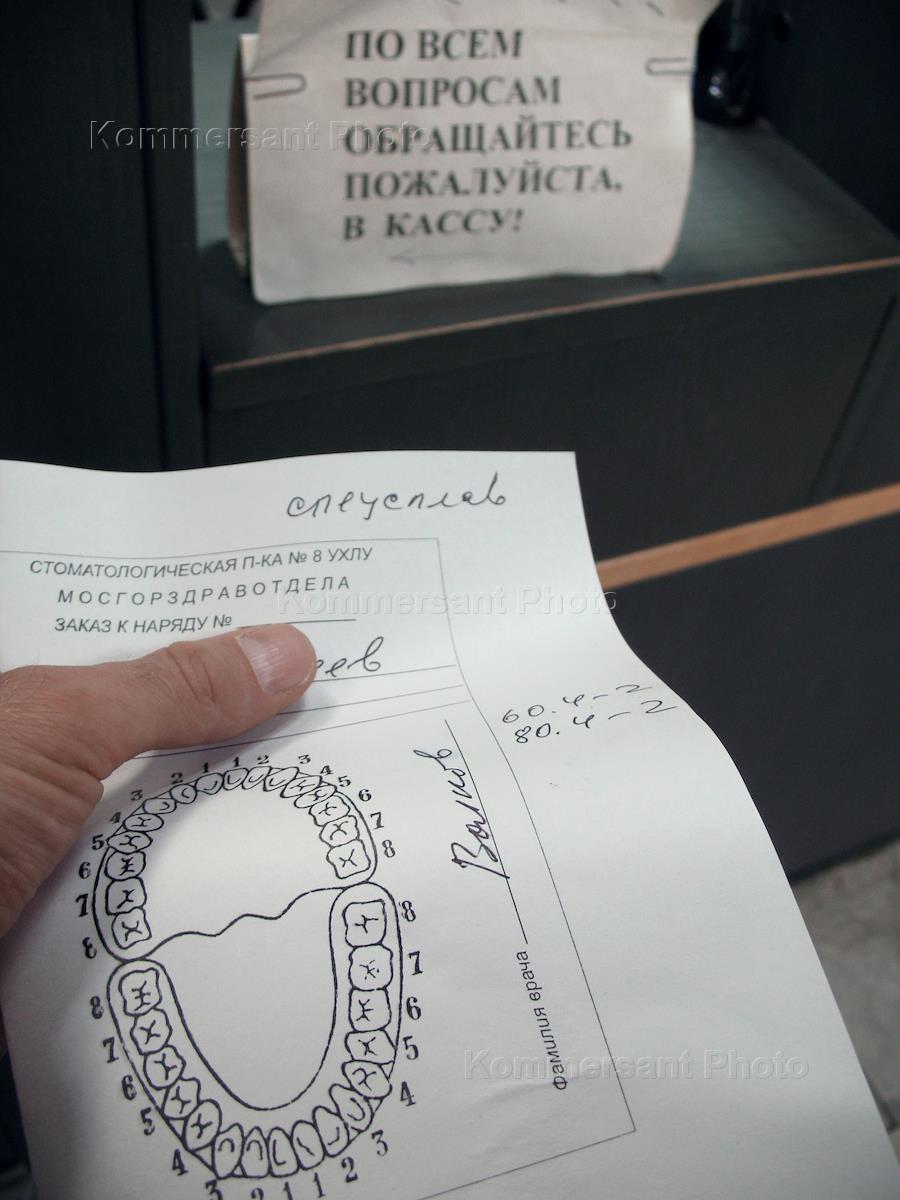 ПО ВСЕМ
ВОПРОСАМ
ОБРАЩАЙТЕСЬ
ПОЖАЛУЙСТА,
В КАССУ!
Kommersant Photo
спецсплав
СТОМАТОЛОГИЧЕСКАЯ П-КА № 8 УХЛУ
МОСГОРЗДРАВОТДЕЛА
Kommersant Photo
ЗАКАЗ К НАРЯДУ №
еев
60.4-2
80.4-2
Волков
Фамилия врача
3 2 1 1 2 3
4 4
5 5
6 6
7 7
8 8
8 8
7 7
6 6
5 5
4 4
3 2 1 1 2 3
Kommersant Photo